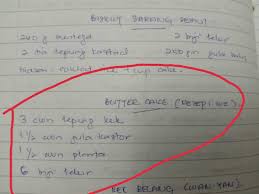 BISKUT BADANG REBUT
240 g mentega 2 biji telur
2 tin tepung kastard 250 gm gula halus
1 cup
BUTTER CAKE (RESEPI WE)
3 cwn tepung kek
1 1/2 cwn gula kastor
1 1/2 cwn planta
6 biji telur
KEK BELANG (WAN-YAN)